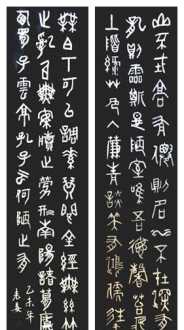 山不在高有僊則名水不在深有
龍則靈斯是陋室唯吾德馨苔痕
上階綠草色入簾青談笑有鴻儒往
無白丁可以調素琴閱金經無絲竹
之亂耳無案牘之勞形南陽諸葛廬
西蜀子雲亭孔子云何陋之有
乙未年